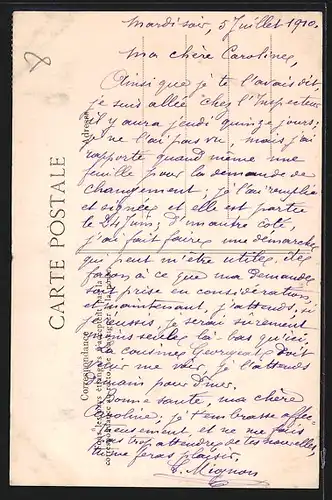 8
Mardi soir, 5 Juillet 1910.
Ma chère Caroline,
Ainsi que je te l'avais dit,
je suis allée chez l'Inspecteur
il y aura jeudi quinze jours;
je ne l'ai pas vu mais j'ai
rapporté quand même une
feuille pour la demande de
changement; je l'ai remplie
et signée et elle est partie
le 24 Juin; D'un autre côté,
j'ai fait faire une démarche
qui peut m'être utile, de
façon à ce que ma demande
soit prise en considération,
et maintenant, j'attends, si
je réussis, je serai sûrement
moins seule là-bas qu'ici.
La cousine Georgeat doit
me voir, je l'attends
pour dîner.
Bonne santé, ma chère
Caroline, je t'embrasse affec-
tueusement et ne me fais
pas trop attendre de tes nouvelles,
tu me feras plaisir.
C. Mignon
CARTE POSTALE
Correspondance
Adresse